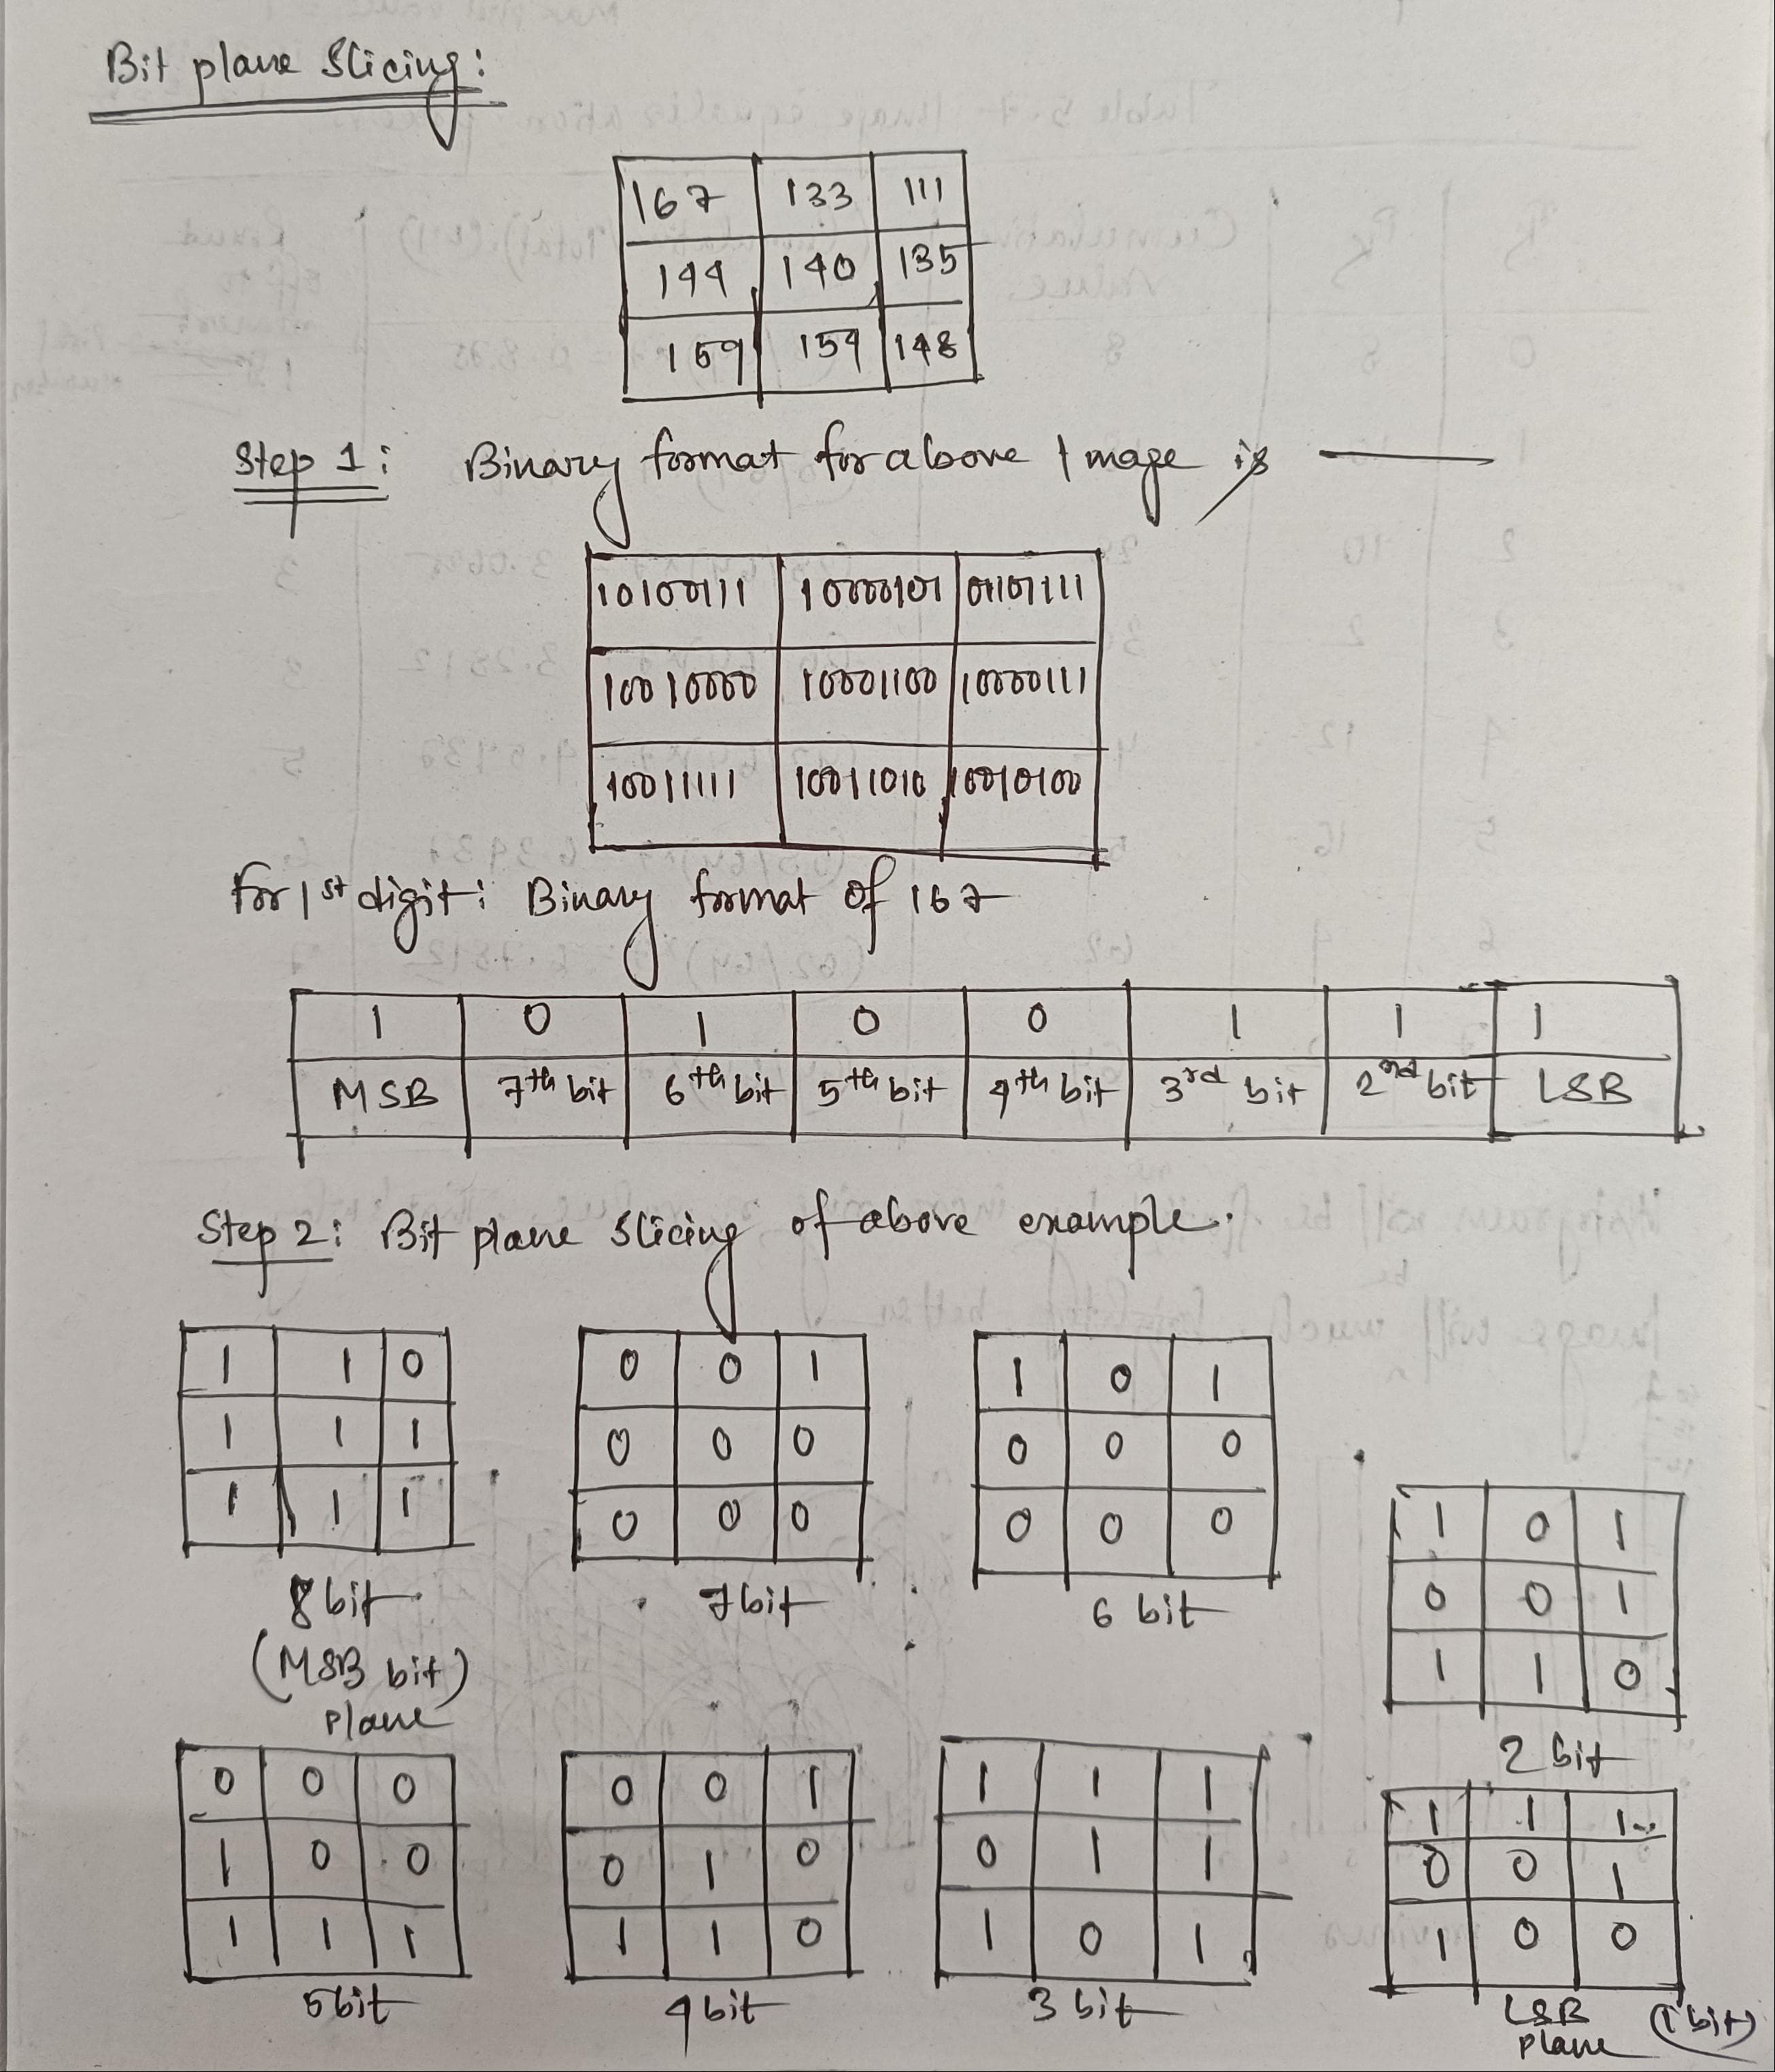 Bit plane Slicing:
167 133 111
144 140 135
159 154 148
Step 1: Binary format for above Image is —
10100111 10000101 01101111
10010000 10001100 10000111
10011111 10011010 10010100
For 1st digit: Binary format of 167
1 0 1 0 0 1 1 1
MSB 7th bit 6th bit 5th bit 4th bit 3rd bit 2nd bit LSB
Step 2: Bit plane Slicing of above example.
1 1 0
1 1 1
1 1 1
8 bit
(MSB bit)
plane
0 0 1
0 0 0
0 0 0
7 bit
1 0 1
0 0 0
0 0 0
6 bit
1 0 1
0 0 1
1 1 0
2 bit
0 0 0
1 0 0
1 1 1
5 bit
0 0 1
0 1 0
1 1 0
4 bit
1 1 1
0 1 1
1 0 1
3 bit
1 1 1
0 0 1
1 0 0
LSB (1 bit)
plane